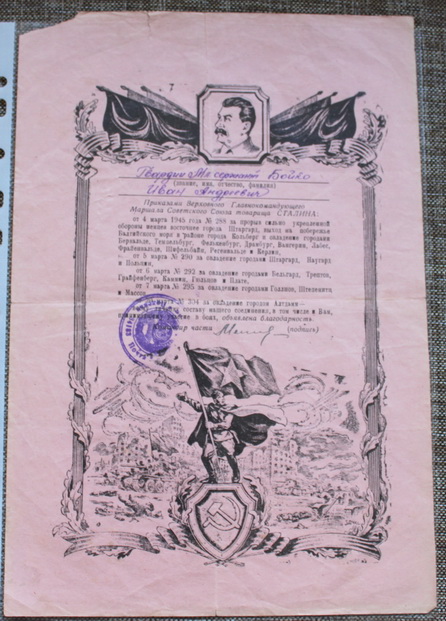 Гвардии Мл. сержант Бойко
(звание, имя, отчество, фамилия)
Иван Андреевич
Приказами Верховного Главнокомандующего
Маршала Советского Союза товарища СТАЛИНА:
от 4 марта 1945 года № 288 за прорыв сильно укрепленной
обороны немцев восточнее города Штаргард, выход на побережье
Балтийского моря в районе города Кольберг и овладение городами
Бервальде, Темпельбург, Фалькенбург, Драмбург, Вангерин, Лабес,
Фрайенвальде, Шифельбайн, Регенвальде и Керлин,
от 5 марта № 290 за овладение городами Штаргард, Наугард
и Польцин,
от 6 марта № 292 за овладение городами Бельгард, Трептов,
Грайфенберг, Каммин, Гюльцов и Плате,
от 7 марта № 295 за овладение городами Голлнов, Штепенитц
и Массов,
марта № 304 за овладение городом Альтдамм
составу нашего соединения, в том числе и Вам,
участие в боях, объявлена благодарность.
части (подпись)